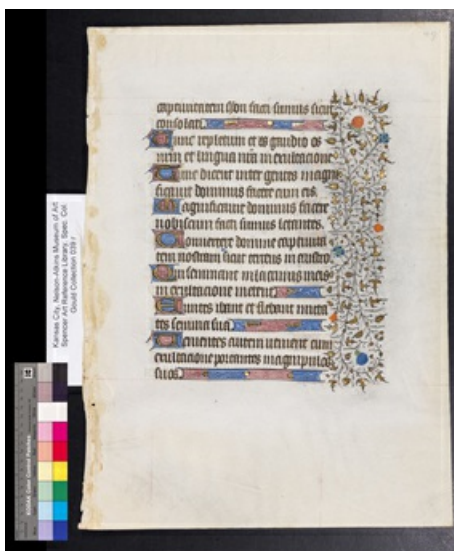 captivitatem syon facti sumus sicut
consolati
Tunc repletum est gaudio os
nrm et lingua nra in exultacione
Tunc dicent inter gentes magni
ficavit dominus facere cum eis
Magnificavit dominus facere
nobiscum facti sumus letantes
Convertere domine captivita
tem nostram sicut torrens in austro
Qui seminant in lacrimis
in exultacione metent
Euntes ibant et flebant mitten
tes semina sua
Venientes autem venient cum
exultacione portantes manipulos
suos
Kansas City, Nelson-Atkins Museum of Art
Spencer Art Reference Library, Spec. Col.
Gould Collection 039 r
KODAK Color Control Patches